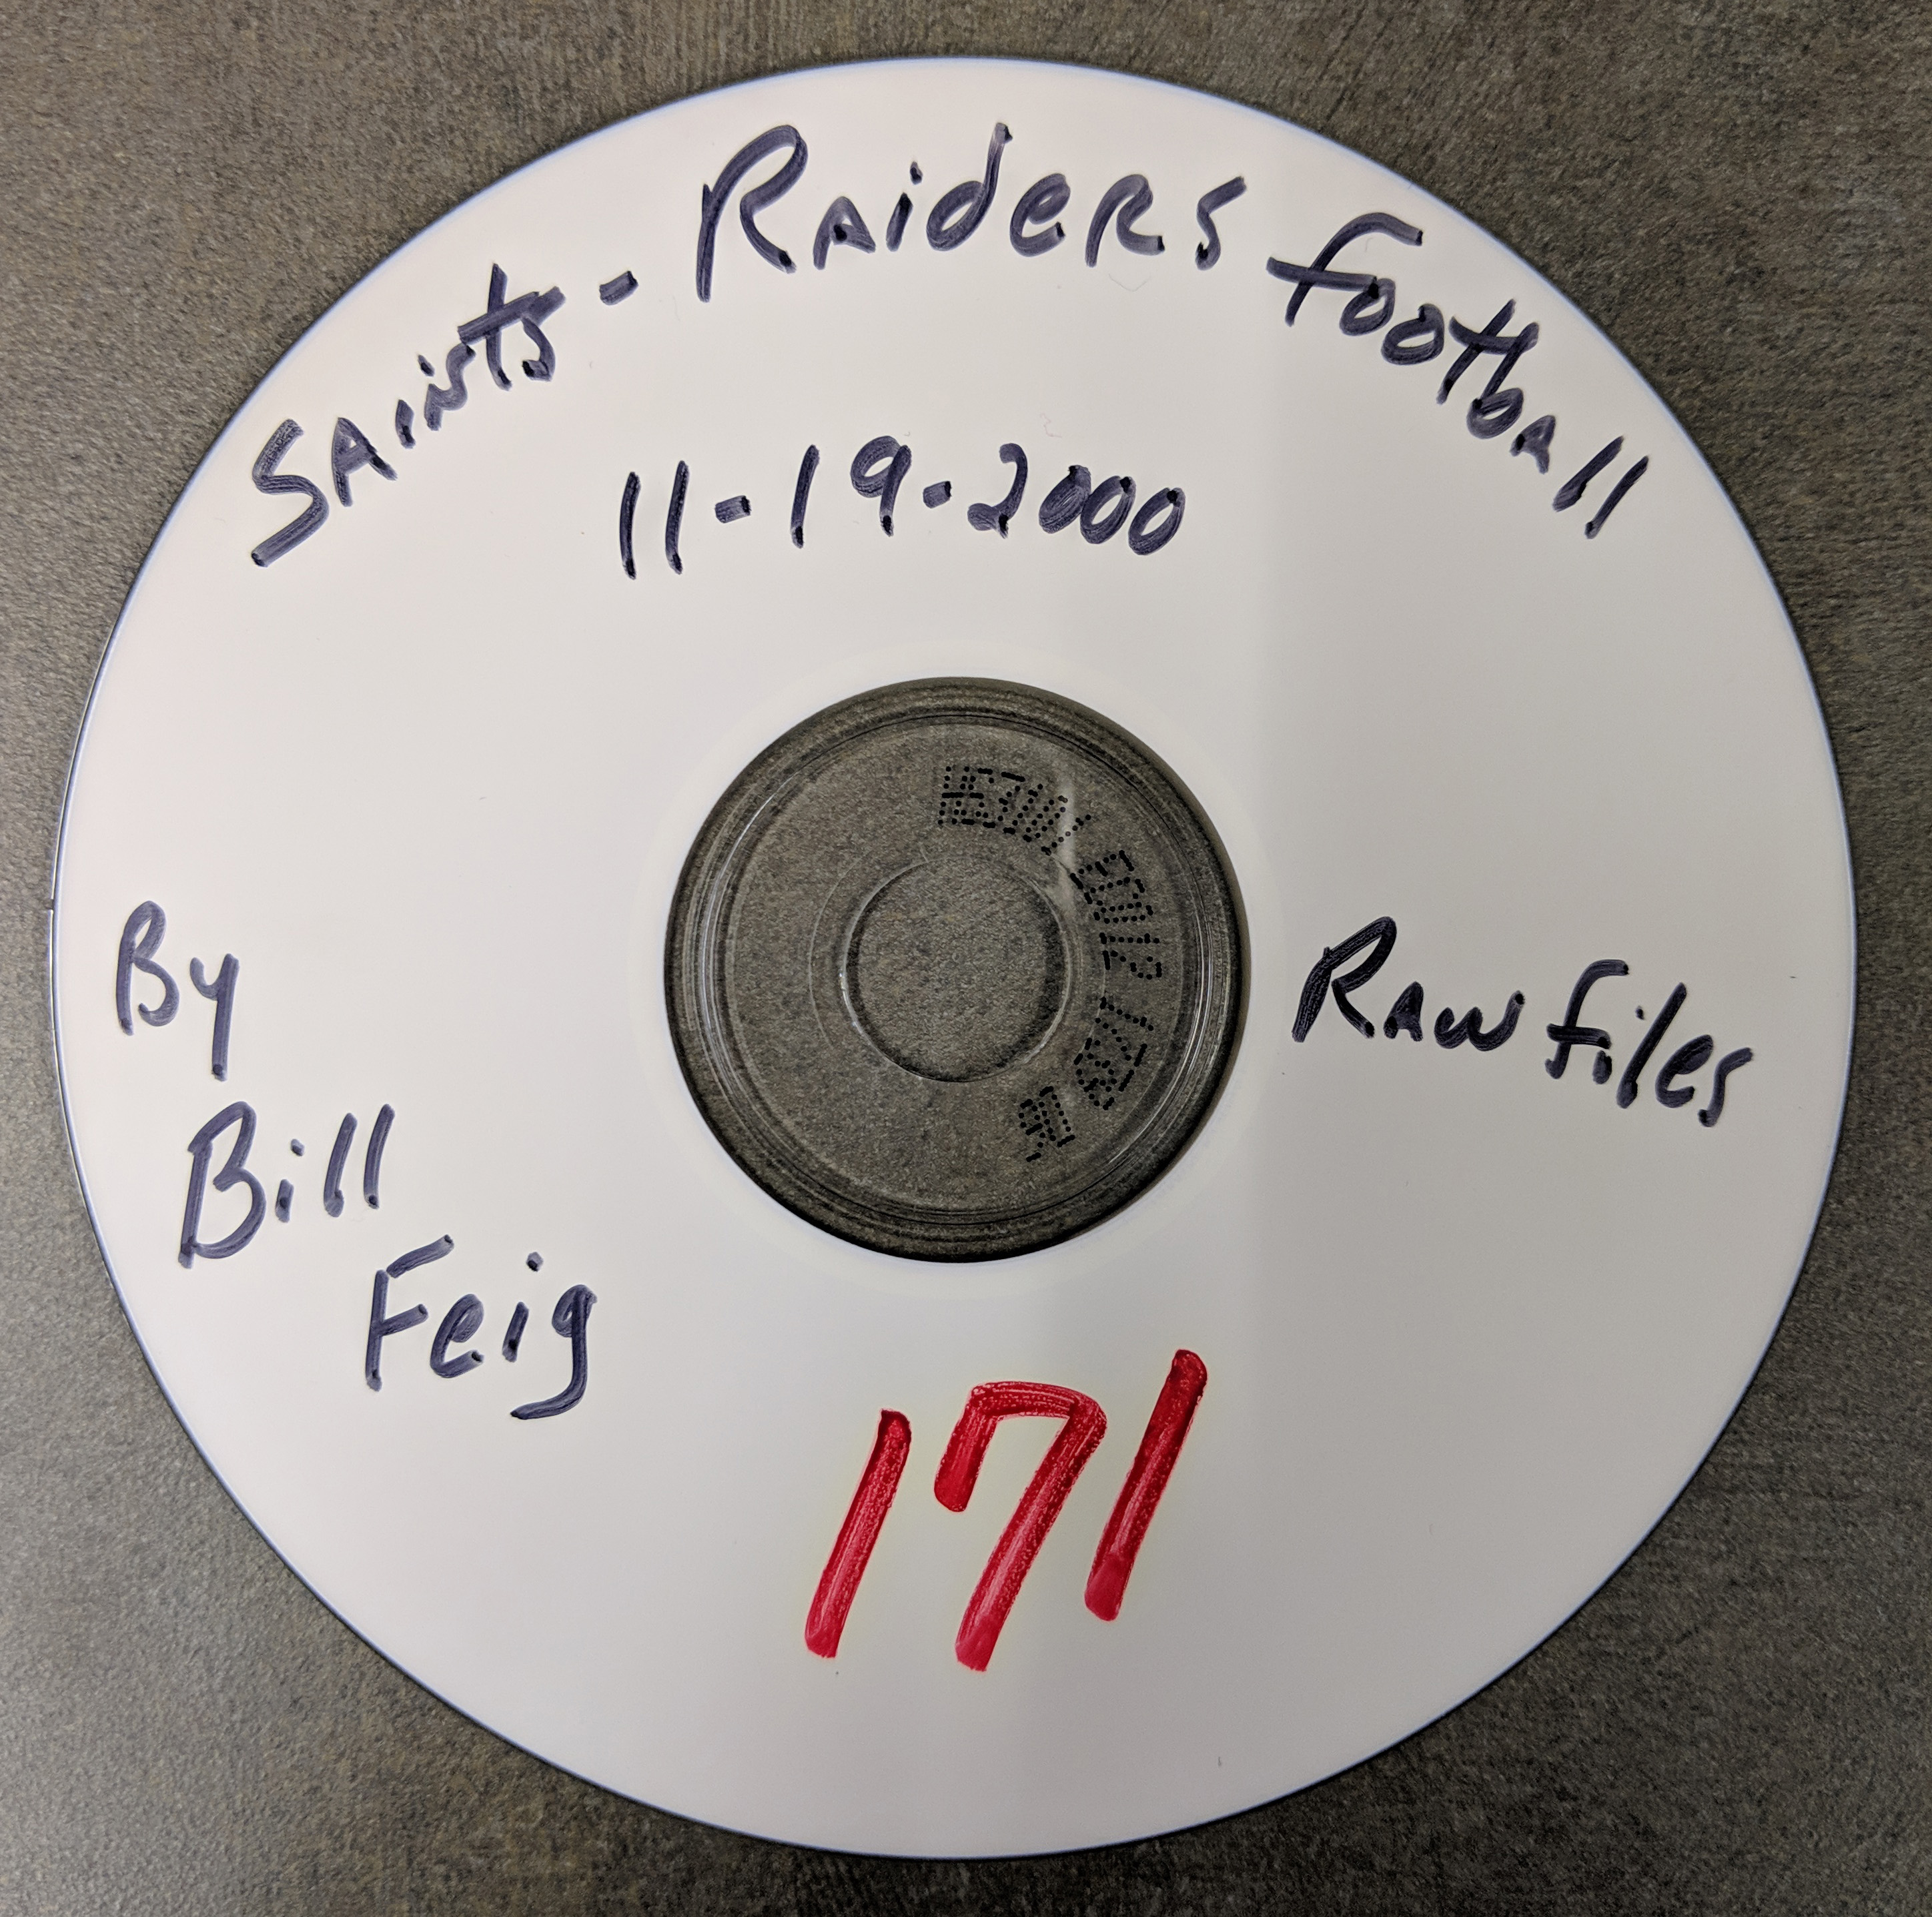 Saints - Raiders football
11-19-2000
By
Bill
Feig
Raw files
171